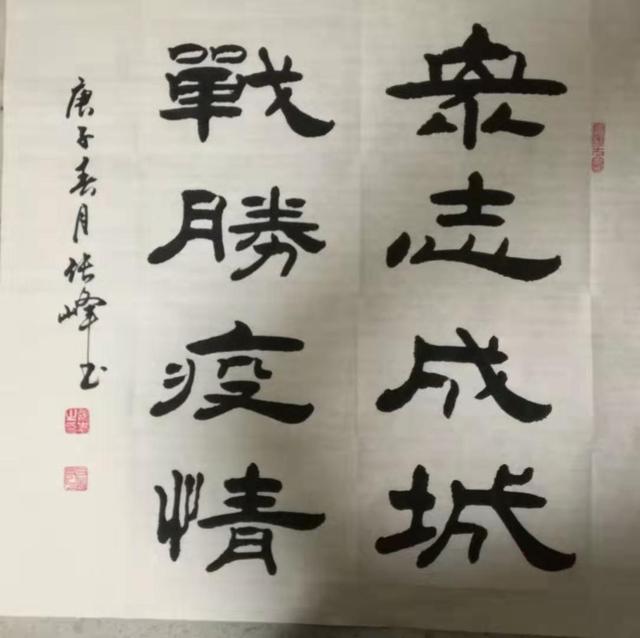 衆志成城
戰勝疫情
庚子春月張峰书